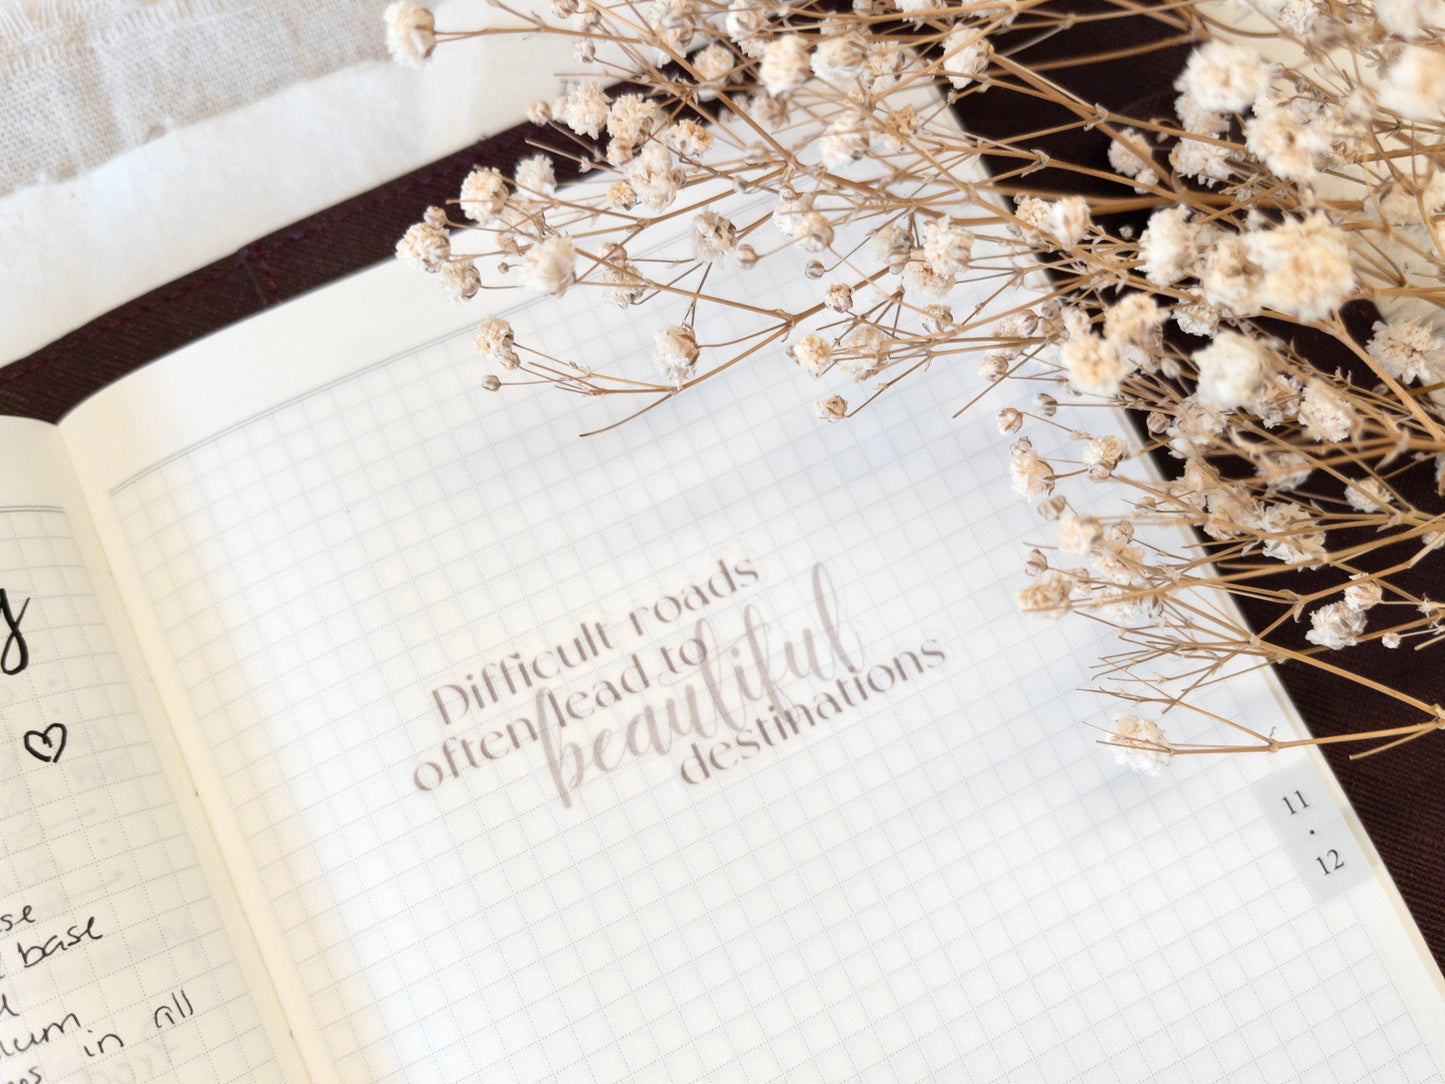 base
in all
Difficult roads
often lead to
beautiful
destinations
11
•
12